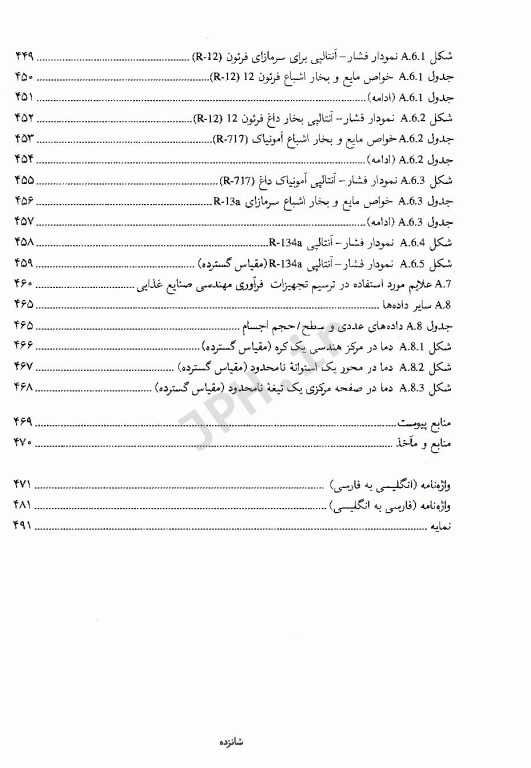 شکل A.6.1 نمودار فشار – آنتالپی برای سرمازای فرئون (R-12) ۴۴۹
جدول A.6.1 خواص مایع و بخار اشباع فرئون 12 (R-12) ۴۵۰
جدول A.6.1 (ادامه) ۴۵۱
شکل A.6.2 نمودار فشار – آنتالپی بخار داغ فرئون 12 (R-12) ۴۵۲
جدول A.6.2 خواص مایع و بخار اشباع آمونیاک (R-717) ۴۵۳
جدول A.6.2 (ادامه) ۴۵۴
شکل A.6.3 نمودار فشار – آنتالپی آمونیاک داغ (R-717) ۴۵۵
جدول A.6.3 خواص مایع و بخار اشباع سرمازای R-13a ۴۵۶
جدول A.6.3 (ادامه) ۴۵۷
شکل A.6.4 نمودار فشار – آنتالپی R-134a ۴۵۸
شکل A.6.5 نمودار فشار – آنتالپی R-134a (مقیاس گسترده) ۴۵۹
A.7 علایم مورد استفاده در ترسیم تجهیزات فرآوری مهندسی صنایع غذایی ۴۶۰
A.8 سایر داده‌ها ۴۶۵
جدول A.8 داده‌های عددی و سطح/حجم اجسام ۴۶۵
شکل A.8.1 دما در مرکز هندسی یک کره (مقیاس گسترده) ۴۶۶
شکل A.8.2 دما در محور یک استوانهٔ نامحدود (مقیاس گسترده) ۴۶۷
شکل A.8.3 دما در صفحه مرکزی یک تیغهٔ نامحدود (مقیاس گسترده) ۴۶۸
منابع پیوست ۴۶۹
منابع و مآخذ ۴۷۰
واژه‌نامه (انگلیسی به فارسی) ۴۷۱
واژه‌نامه (فارسی به انگلیسی) ۴۸۱
نمایه ۴۹۱
شانزده
JPH.ir